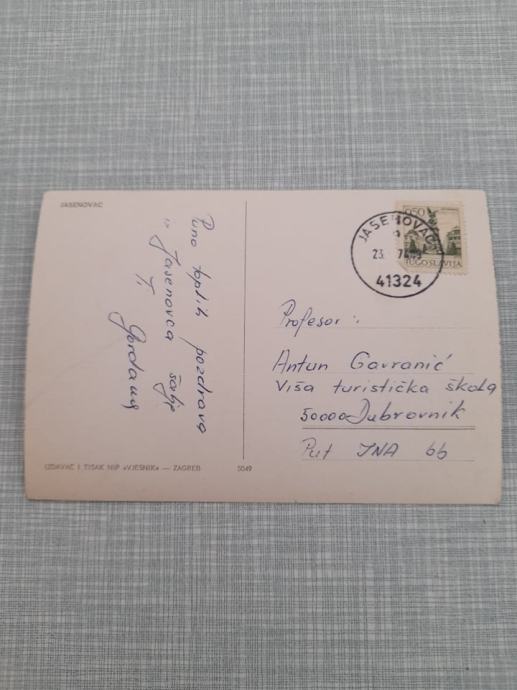 JASENOVAC
Puno toplih pozdrava
iz Jasenovca šalje
Ti
Gordana
IZDAVAČ I TISAK NIP «VJESNIK» — ZAGREB
5049
JASENOVAC
23. 74
41324
0.50
JUGOSLAVIJA
Profesor:
Antun Gavranić
Viša turistička škola
50000 Dubrovnik
Put JNA 66